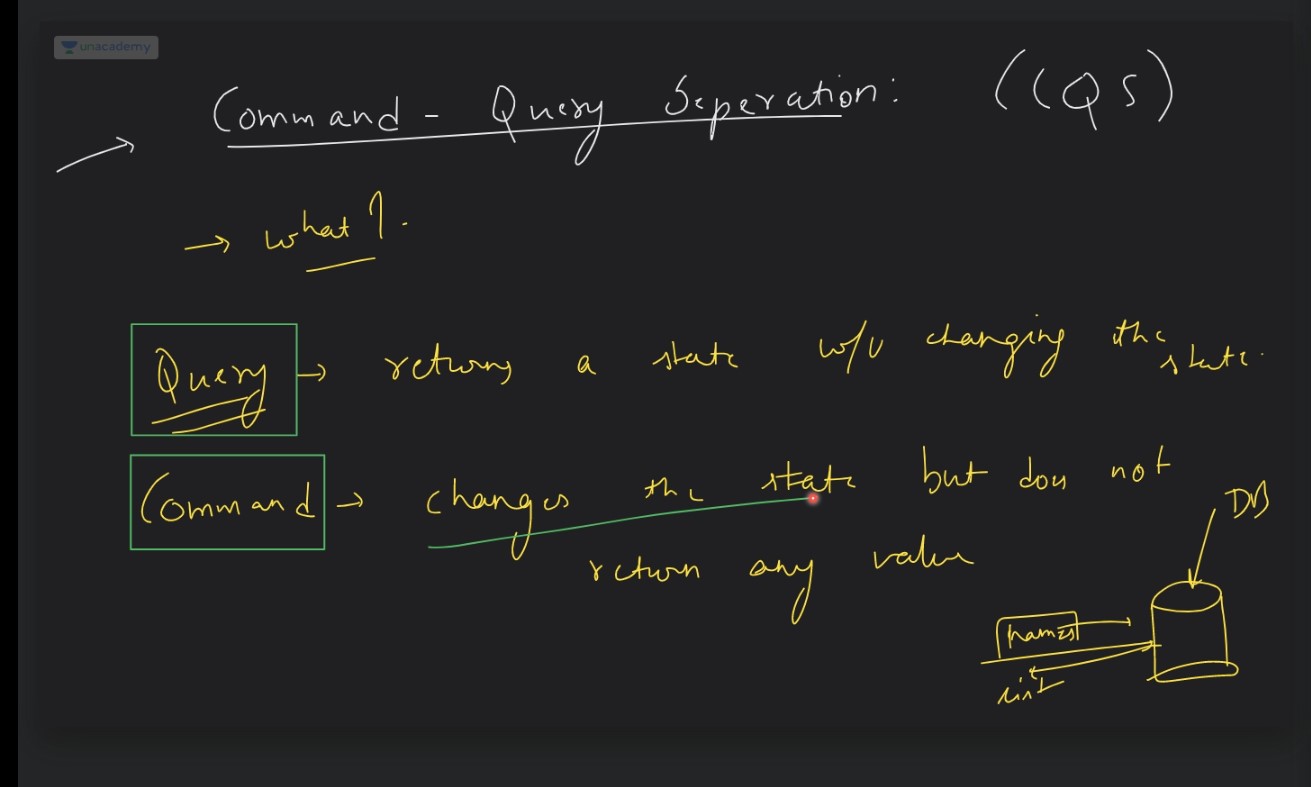 unacademy
Command - Query Seperation: (CQS)
→ what?.
Query → returns a state w/o changing the state.
Command → changes the state but does not
return any value
DB
names
list